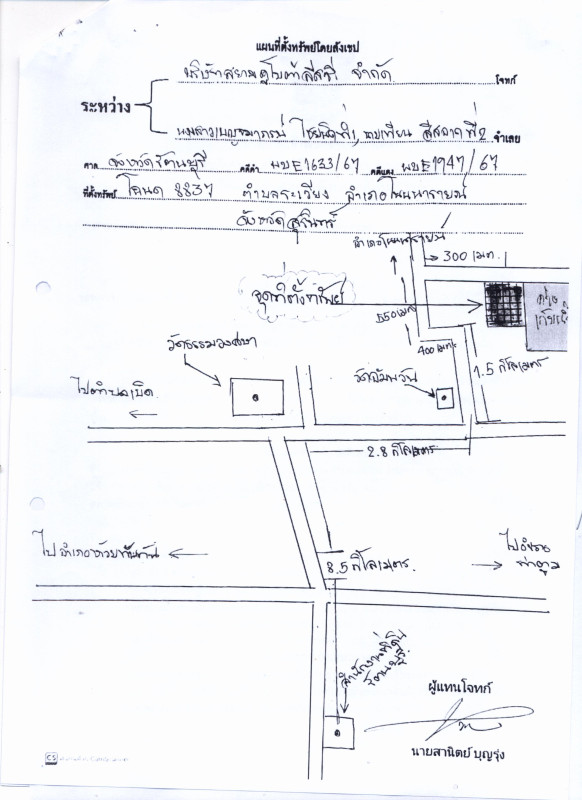 แผนที่ตั้งทรัพย์โดยสังเขป
บริษัทสยามคูโบต้าลีสซิ่ง จำกัด โจทก์
ระหว่าง
ที่1, ที่2 จำเลย
ศาล จังหวัดรัตนบุรี คดีดำ ผบE1633/67 คดีแดง ผบE1947/67
ที่ตั้งทรัพย์ โฉนด 8837 ตำบลระเวียง อำเภอโนนนารายณ์
จังหวัดสุรินทร์
อำเภอโนนนารายณ์
300 เมตร
จุดที่ตั้งทรัพย์
550 เมตร
400 เมตร
1.5 กิโลเมตร
วัดธรรมวงศษา
วัดอัมพวัน
ไปตำบลเบิด
2.8 กิโลเมตร
ไปอำเภอห้วยทับทัน
8.5 กิโลเมตร
ไปอำเภอ
ท่าตูม
สำนักงานที่ดิน
รัตนบุรี
ผู้แทนโจทก์
นายสานิตย์ บุญรุ่ง